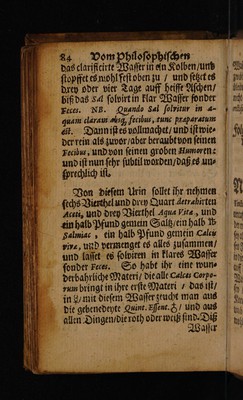 84 Vom Philosophischen
das clarificirte Wasser in ein Kolben/ und
stopffet es wohl fest oben zu / und setzet es
drey oder vier Tage auff heisse Aschen/
biß das Sal solvirt in klar Wasser sonder
Feces. NB. Quando Sal solvitur in a-
quam claram absq; fecibus, tunc præparatum
est. Dann ist es vollmachet/ und ist wie-
der rein als zuvor/ aber beraubt von seinen
Fecibus, und von seinen groben Humoren:
und ist nun sehr subtil worden/ daß es un-
sprechlich ist.
Von diesem Urin sollet ihr nehmen
sechs Vierthel und drey Quart detrahirten
Aceti, und drey Vierthel Aqua Vitæ, und
ein halb Pfund gemein Saltz/ ein halb ℔
Salmiac, ein halb Pfund gemein Calcis
vivæ, und vermenget es alles zusammen/
und lasset es solviren in klares Wasser
sonder Feces. So habt ihr eine wun-
derbahrliche Materi/ die alle Calces Corpo-
rum bringt in ihre erste Materi / das ist/
mit diesem Wasser zeucht man aus
die gebenedeyte Quint. Essent. und aus
allen Dingen/ die roth oder weiß sind. Diß
Wasser